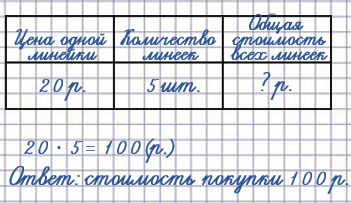 Цена одной линейки
Количество линеек
Общая стоимость всех линеек
20 р.
5 шт.
? р.
20 · 5 = 100 (р.)
Ответ: стоимость покупки 100 р.